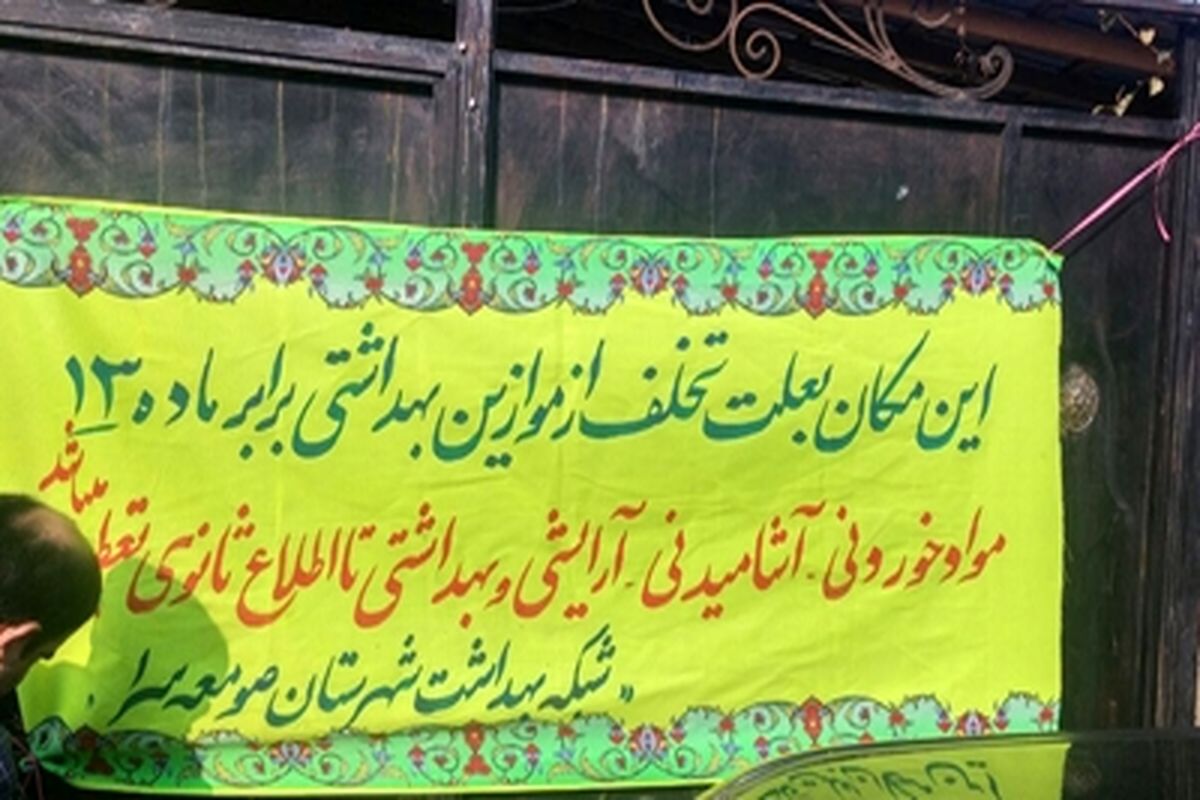 این مکان بعلت تخلف از موازین بهداشتی برابر ماده ۱۳
مواد خوردنی - آشامیدنی - آرایشی و بهداشتی تا اطلاع ثانوی
میباشد
" شبکه بهداشت شهرستان صومعه سرا